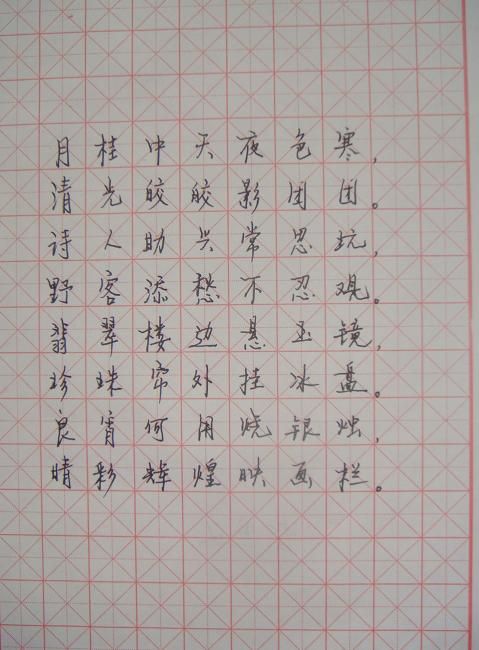 月桂中天夜色寒，
清光皎皎影团团。
诗人助兴常思玩，
野客添愁不忍观。
翡翠楼边悬玉镜，
珍珠帘外挂冰盘。
良宵何用烧银烛，
晴彩辉煌映画栏。